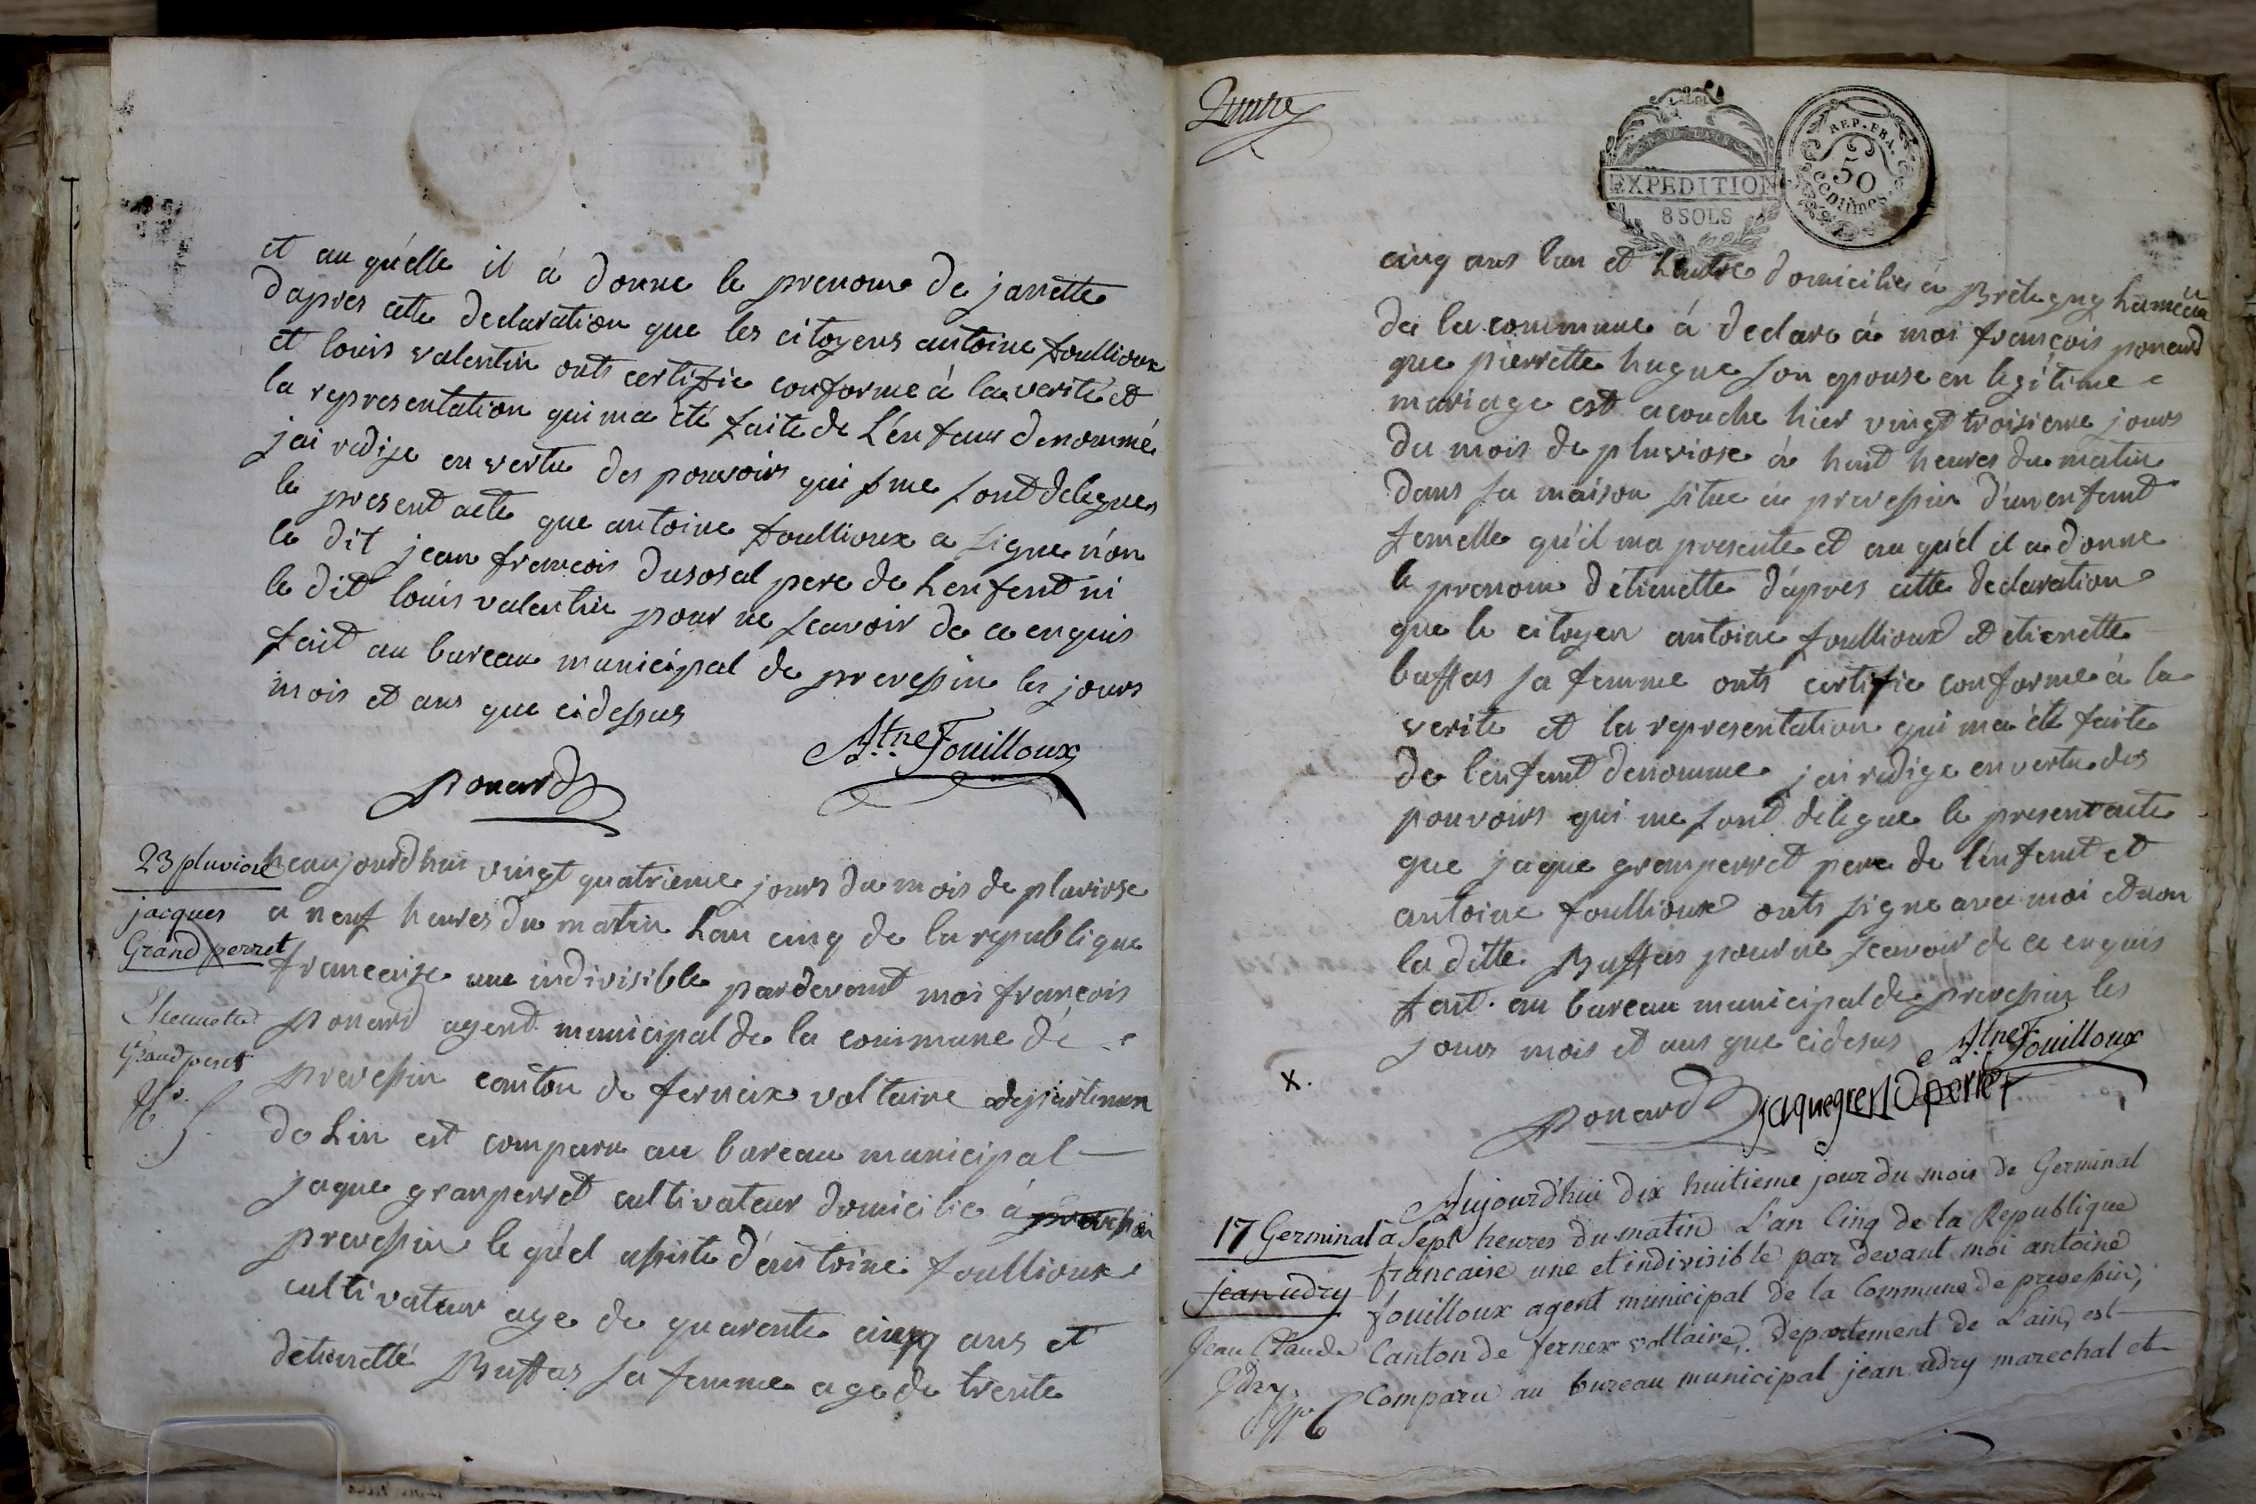 et au quelle il à donne le prenom de janette
dapres cette declaration que les citoyens antoine foullioux
et louis valentin onts certifie conforme à la verité et
la representation qui ma eté faite de L'enfant denommé
jai redige en vertu des pouvoirs qui me sont delegues
le present acte que antoine foullioux a signe n'on
le dit jean francois dusosal pere de Lenfent ni
le dit louis valentin pour ne scavoir de ce enquis
fait au bureau municipal de prevessin les jours
mois et ans que cidessus
Atne Fouilloux
ponard
23 pluviose
jacques
Grand perret
Etiennette
Grand peret
heaujourdhui vingt quatrieme jours du mois de pluviose
a neuf heures du matin Lan cinq de la republique
francaise une indivisible pardevant moi françois
ponard agent municipal de la commune de
prevessin canton de fernaix voltaire departemen
de Lin est comparu au bureau municipal
jaque granperret cultivateur domicilie à prevessin
prevessin le quel assiste d'antoine foullioux
cultivateur age de quarente cinq ans et
detienette Buffas sa femme age de trente
EXPEDITION
8 SOLS
REP. FRA.
50
centimes
cinq ans l'un et Lautre domicilie à Bretegny hameau
de la commune à declare à moi françois ponard
que pierrette hugue son epouse en legitime
mariage est acouche hier vingt troisieme jours
du mois de pluviose à huit heures du matin
dans sa maison situe à prevessin d'un enfant
femelle qu'il ma presente et au quel il a donne
le prenom d'etienette d'apres cette declaration
que le citoyen antoine foullioux et etienette
buffas sa femme onts certifie conforme à la
verite et la representation qui ma été faite
de l'enfant denomme jai redige en vertu des
pouvoirs qui me sont delegue le present acte
que jaque granperret pere de l'enfant et
antoine foullioux onts signe avec moi et non
la ditte Buffas pour ne scavoir de ce enquis
fait au bureau municipal de prevessin les
jours mois et ans que cidesus
Atne Fouilloux
x.
ponard jaque grendperret
17 Germinal
jean udry
Jean Claude
Udry
Aujourd'hui dix huitieme jour du mois de Germinal
à Sept heures du matin L'an Cinq de la Republique
francaise une et indivisible par devant moi antoine
fouilloux agent municipal de la Commune de prevessin,
Canton de fernex voltaire, departement de L'ain, est
Comparu au bureau municipal jean udry marechal et